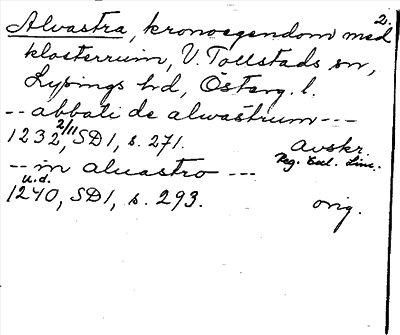 2.
Alvastra, kronoegendom med
klosterruin, V. Tollstads sn,
Lysings hd, Österg. l.
-- abbati de alwastrum ---
1232 2/11, SD1, s. 271. avskr.
Reg. Eccl. Linc.
-- in aluastro ---
u.d.
1240, SD1, s. 293. orig.